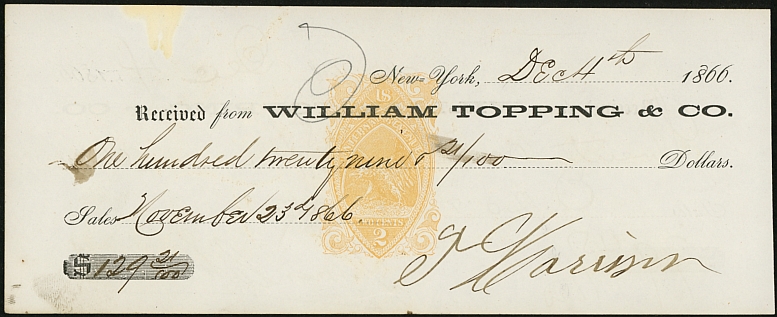 New-York, Dec 4th 1866.
Received from WILLIAM TOPPING & CO.
One hundred twenty nine & 21/100 Dollars.
Sales November 23d 1866
U.S.
INTERNAL REVENUE
2 CENTS
2
$129 21/100
J Harrison